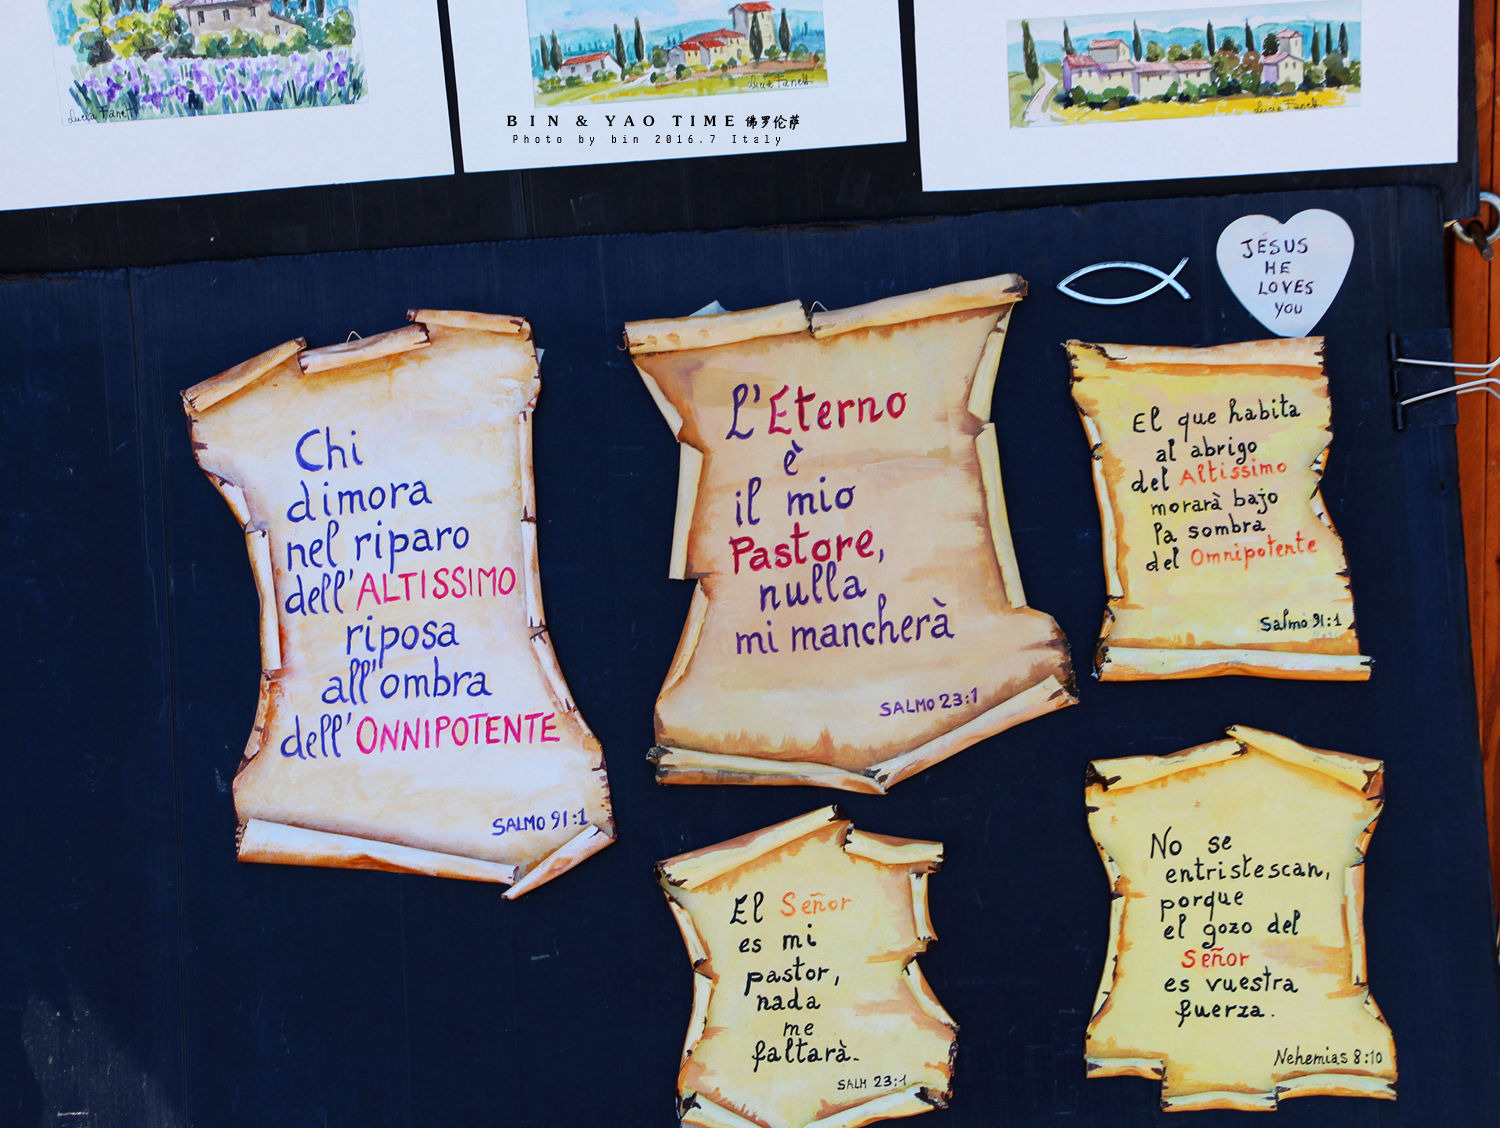 Lucia Fanelli
Lucia Fanelli
Lucia Fanelli
BIN & YAO TIME 佛罗伦萨
Photo by bin 2016.7 Italy
JESUS
HE
LOVES
YOU
Chi
dimora
nel riparo
dell'ALTISSIMO
riposa
all'ombra
dell'ONNIPOTENTE
SALMO 91:1
L'Eterno
è
il mio
Pastore,
nulla
mi mancherà
SALMO 23:1
El que habita
al abrigo
del Altissimo
morarà bajo
la sombra
del Omnipotente
Salmo 91:1
El Señor
es mi
pastor,
nada
me
faltarà.
SALM 23:1
No se
entristescan,
porque
el gozo del
Señor
es vuestra
fuerza.
Nehemias 8:10